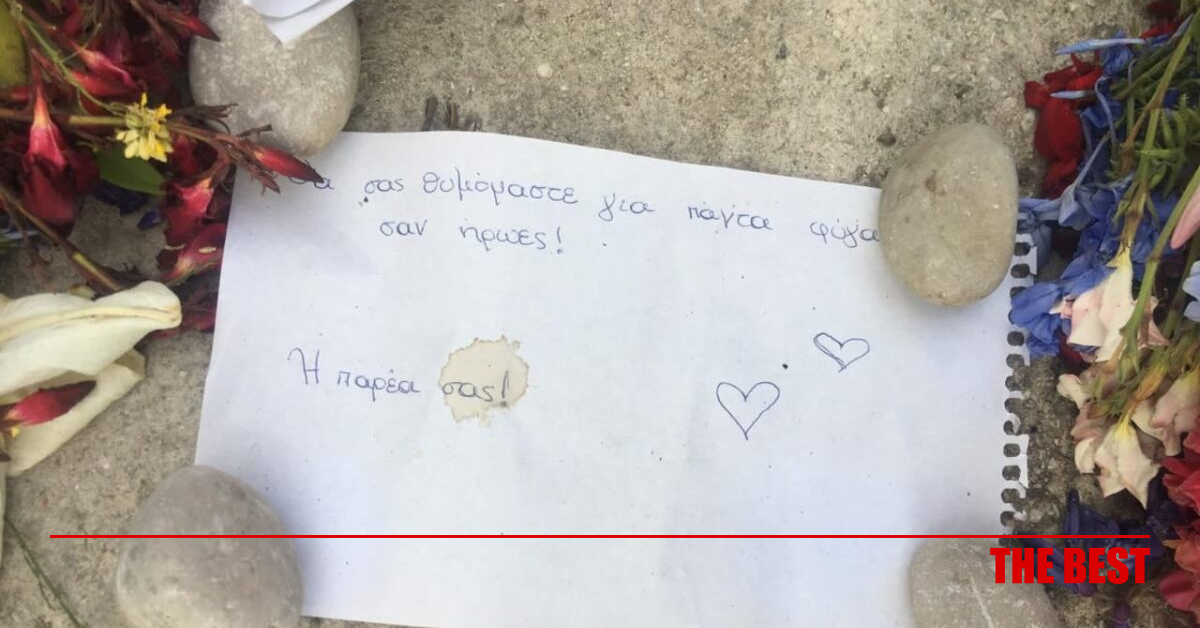 σας θυμόμαστε για πάντα
σαν ήρωες!
Η παρέα σας!
THE BEST